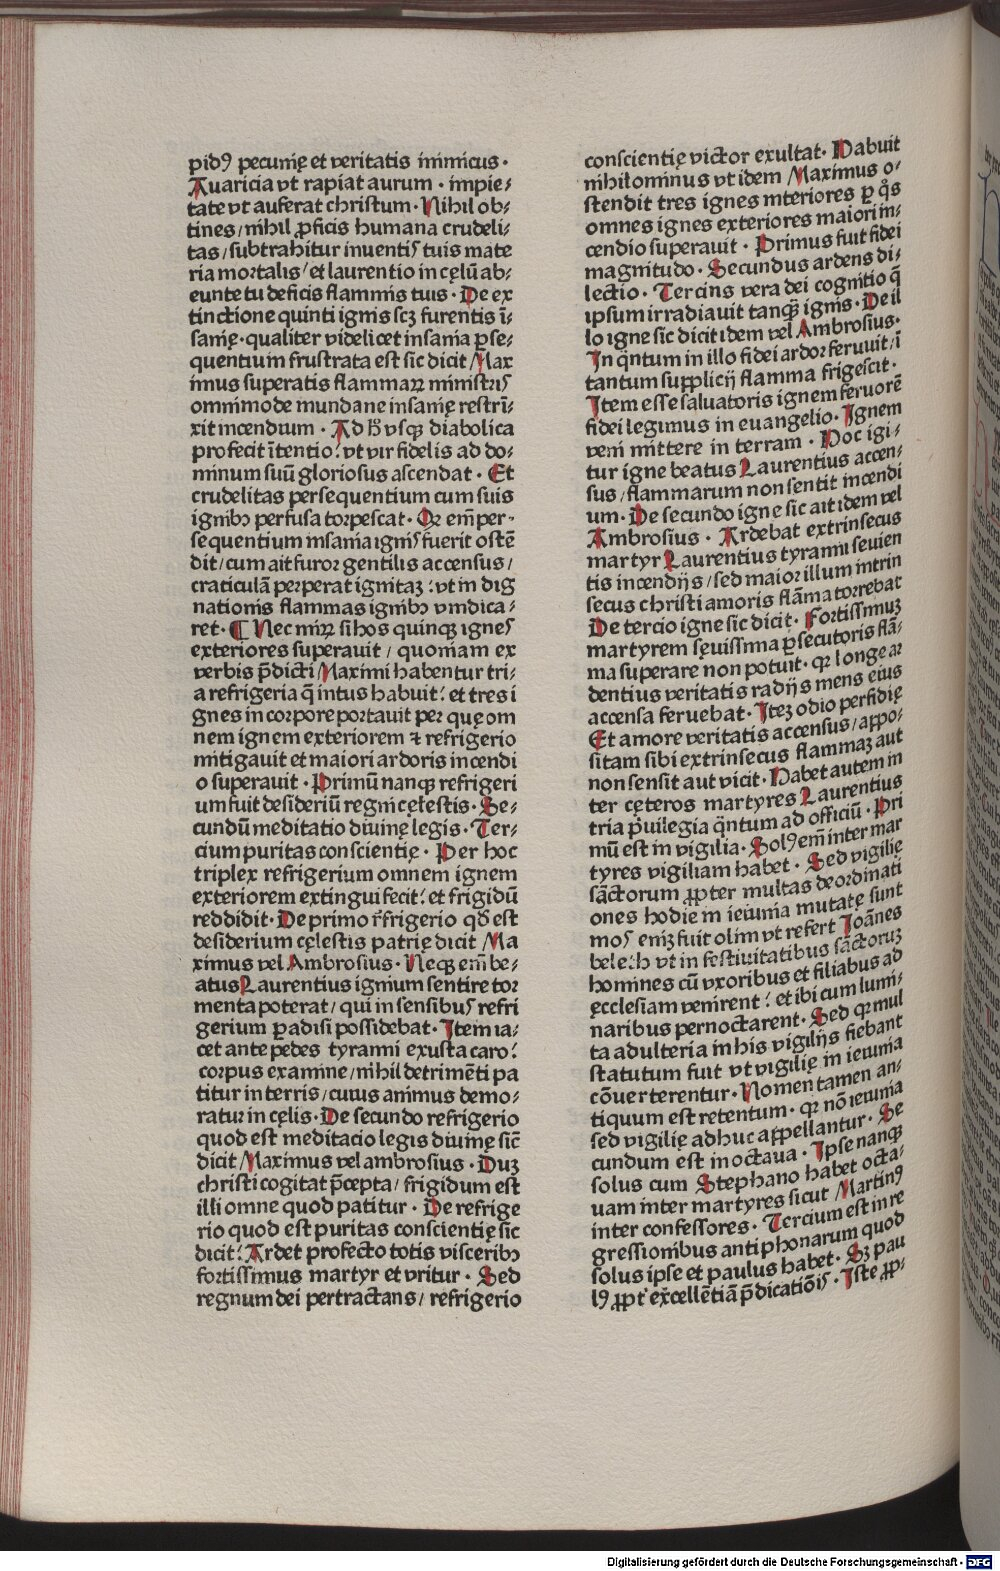 pidꝰ pecunię et veritatis inimicus·
Auaricia vt rapiat aurum· impie⸗
tate vt auferat christum·Nihil ob⸗
tines/nihil ꝓficis humana crudeli⸗
tas/subtrahitur inuentis tuis mate
ria mortalis/et laurentio in cęlū ab⸗
eunte tu deficis flammis tuis·De ex
tinctione quinti ignis scꝫ furentis ī⸗
sanię·qualiter videlicet insania ꝑse⸗
quentium frustrata est sic dicit Max
imus superatis flammaꝝ ministris
omnimode mundane insanię restrī⸗
xit incendium· Ad hꝰ vsqꝫ diabolica
profecit ītentio/vt vir fidelis ad do⸗
minum suū gloriosus ascendat· Et
crudelitas persequentium cum suis
ignibꝫ perfusa torpescat· Qꝛ em̄ per⸗
sequentium insania ignis fuerit ostē
dit/cum ait furor gentilis accensus/
craticulā perperat ignitaꝫ:vt in dig
nationis flammas ignibꝫ vindica⸗
ret·¶ Nec miꝝ si hos quinqꝫ ignes
exteriores superauit/ quoniam ex
verbis p̄dicti Maximi habentur tri⸗
a refrigeria q̄ intus habuit: et tres i
gnes in corpore portauit per quę om
nem ignem exteriorem ⁊ refrigerio
mitigauit et maiori ardoris incendi
o superauit· Primū nanqꝫ refrigeri
um fuit desideriū regni cęlestis· Se⸗
cundū meditatio diuinę legis· Ter⸗
cium puritas conscientię· Per hoc
triplex refrigerium omnem ignem
exteriorem extingui fecit: et frigidū
reddidit·De primo r̄frigerio qd̄ est
desiderium cęlestis patrię dicit Ma
ximus vel Ambrosius·Neqꝫ em̄ be⸗
atus Laurentius ignium sentire tor
menta poterat/qui in sensibus refri
gerium ꝑadisi possidebat·Item ia⸗
cet ante pedes tyranni exusta caro:
corpus examine/nihil detrimēti pa
titur in terris/cuius animus demo⸗
ratur in cęlis·De secundo refrigerio
quod est meditacio legis diuinę sic̄
dicit Maximus vel ambrosius·Duꝫ
christi cogitat p̄cepta/frigidum est
illi omne quod patitur· De refrige
rio quod est puritas conscientię sic
dicit: Ardet profecto totis visceribꝫ
fortissimus martyr et vritur· Sed
regnum dei pertractans/ refrigerio
conscientię victor exultat· Habuit
nihilominus vt idem Maximus o⸗
stendit tres ignes interiores ꝑ qͦs
omnes ignes exteriores maiori in⸗
cendio superauit· Primus fuit fidei
magnitudo· Secundus ardens di⸗
lectio· Tercius vera dei cognitio q̄
ipsum irradiauit tanqꝫ ignis·De il
lo igne sic dicit idem vel Ambrosius·
In qͣntum in illo fidei ardor feruuit/ī
tantum supplicij flamma frigescit·
Item esse saluatoris ignem feruorē
fidei legimus in euangelio· Ignem
veni mittere in terram· Hoc igi⸗
tur igne beatus Laurentius accen⸗
sus/flammarum non sentit incendi
um·De secundo igne sic ait idem vel
Ambrosius· Ardebat extrinsecus
martyr Laurentius tyranni seuien
tis incendijs/sed maior illum intrin
secus christi amoris flāma torrebat
De tercio igne sic dicit· Fortissimuꝫ
martyrem sęuissima ꝑsecutoris flā⸗
ma superare non potuit· qꝛ longe ar
dentius veritatis radijs mens eius
accensa feruebat·Iteꝫ odio perfidię
Et amore veritatis accensus/appo⸗
sitam sibi extrinsecus flammaꝫ aut
non sensit aut vicit·Habet autem in
ter cęteros martyres Laurentius
tria p̄uilegia qͣntum ad officiū· Pri
mū est in vigilia· Solꝰ em̄ inter mar
tyres vigiliam habet· Sed vigilię
sāctorum ꝓpter multas deordinati
ones hodie in ieiunia mutatę sunt
mos enim̄ fuit olim vt refert Ioānes
beleth vt in festiuitatibus sāctoruꝫ
homines cū vxoribus et filiabus ad
ęcclesiam venirent: et ibi cum lumi⸗
naribus pernoctarent· Sed qꝛ mul
ta adulteria in his vigilijs fiebant
statutum fuit vt vigilię in ieiunia
cōuerterentur· Nomen tamen an⸗
tiquum est retentum· qꝛ nō ieiunia
sed vigilię adhuc appellantur· Se
cundum est in octaua· Ipse nanqꝫ
solus cum Stephano habet octa⸗
uam inter martyres sicut Martinꝰ
inter confessores· Tercium est in re
gressionibus antiphonarum quod
solus ipse et paulus habet· Sꝫ pau
lꝰ ꝓpt̄ excellētiā p̄dicatiōis· Iste ꝓp⸗
Digitalisierung gefördert durch die Deutsche Forschungsgemeinschaft · DFG